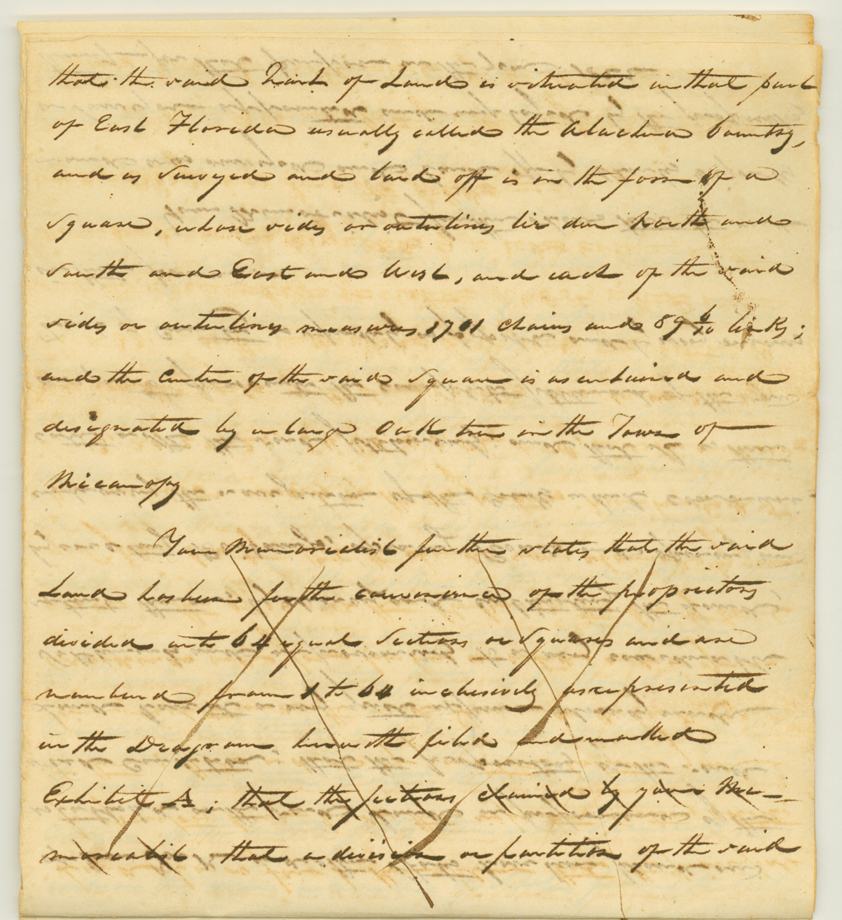 that the said Tract of Land is situated in that part
of East Florida usually called the Alachua Country,
and as Surveyed and laid off is in the form of a
Square, whose sides or outerlines lie due North and
South and East and West, and each of the said
sides or outerlines measures 1701 Chains and 89 6/10 links;
and the Center of the said Square is ascertained and
designated by a large Oak tree in the Town of
Micanopy
Your Memorialist further states that the said
Land has been for the convenience of the proprietors
divided into 64 equal Sections or Squares and are
numbered from 1 to 64 inclusively as represented
in the Diagram herewith filed and marked
Exhibit A; that the sections claimed by your Me-
morialist that a division or partition of the said